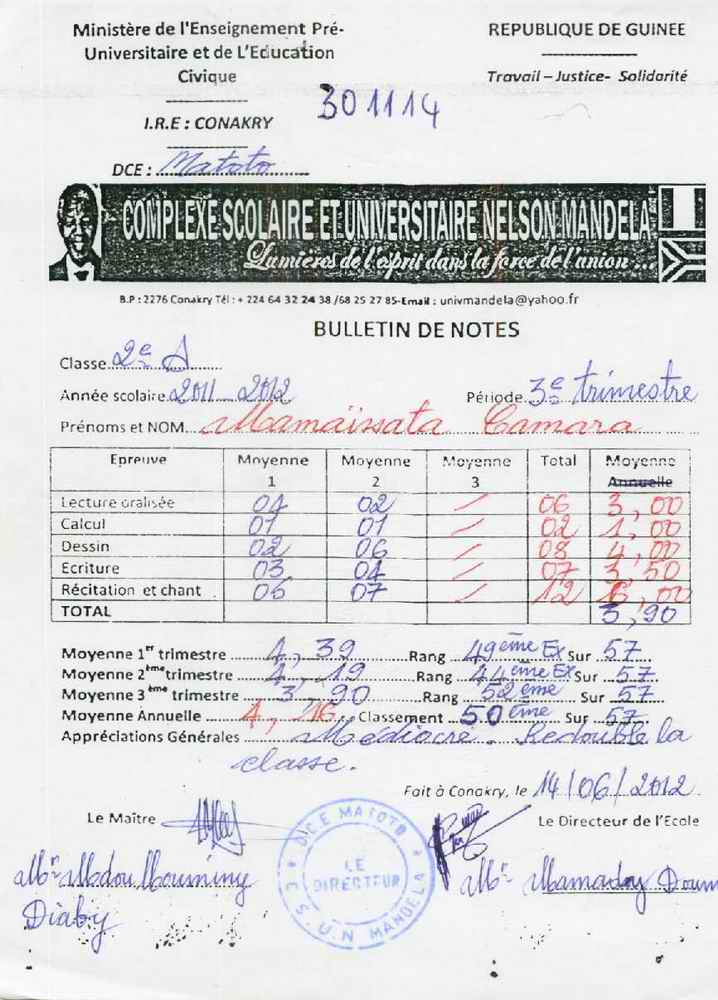 Ministère de l'Enseignement Pré-
Universitaire et de L'Education
Civique
REPUBLIQUE DE GUINEE
Travail – Justice- Solidarité
I.R.E : CONAKRY
301114
DCE : Matoto
COMPLEXE SCOLAIRE ET UNIVERSITAIRE NELSON MANDELA
Lumières de l'esprit dans la force de l'union...
B.P : 2276 Conakry Tél : + 224 64 32 24 38 /68 25 27 85-Email : univmandela@yahoo.fr
BULLETIN DE NOTES
Classe 2e A
Année scolaire 2011 2012 Période 3e trimestre
Prénoms et NOM Mamaïssata Camara
Epreuve Moyenne 1 Moyenne 2 Moyenne 3 Total Moyenne Annuelle
Lecture oralisée 04 02 / 06 3,00
Calcul 01 01 / 02 1,00
Dessin 02 06 / 08 4,00
Ecriture 03 04 / 07 3,50
Récitation et chant 06 07 / 12 6,00
TOTAL 3,90
Moyenne 1er trimestre 4,39 Rang 49ème Ex Sur 57
Moyenne 2ème trimestre 4,19 Rang 44ème Ex Sur 57
Moyenne 3ème trimestre 3,90 Rang 52ème Sur 57
Moyenne Annuelle 4,16 Classement 50ème Sur 57
Appréciations Générales Médiocre. Redouble la
classe.
Fait à Conakry, le 14/06/2012
Le Maître Le Directeur de l'Ecole
DCE MATOTO
LE
DIRECTEUR
C.S.U.N MANDELA
Mr Mamadou
Diaby